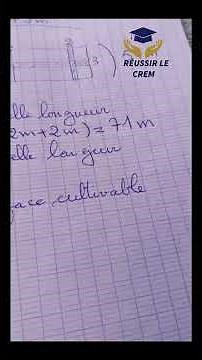 RÉUSSIR LE
CREM
3
elle longueur
2m+2m) = 71m
elle largeur
ace cultivable